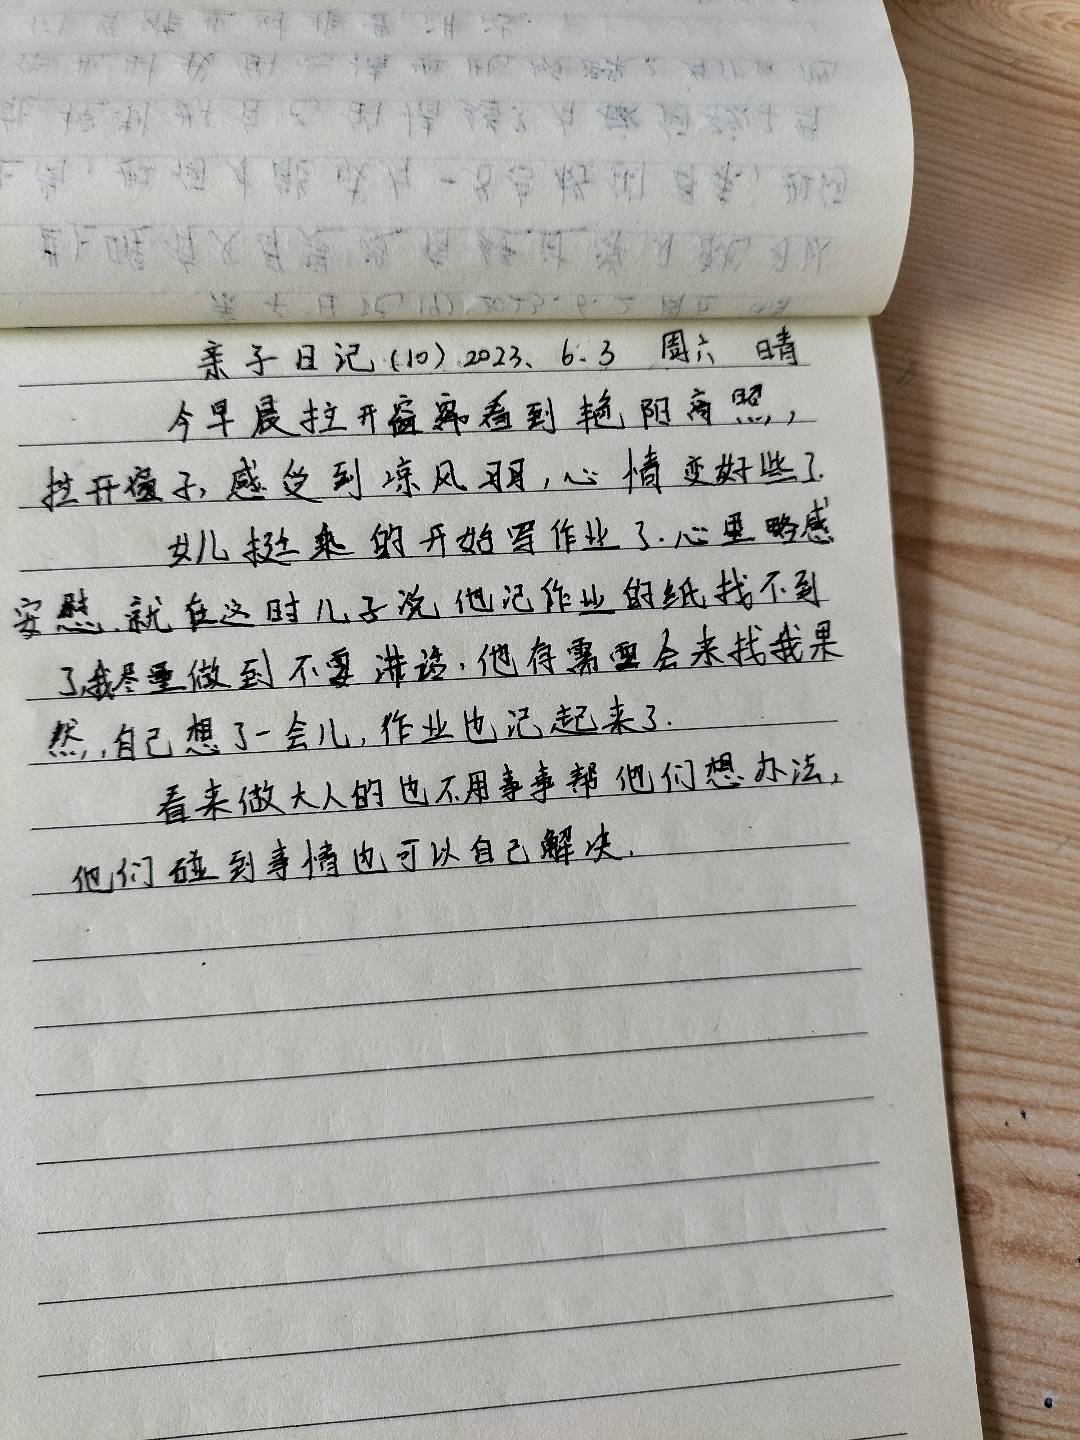 亲子日记(10) 2023、6.3 周六 晴
今早晨拉开窗帘看到艳阳高照,
拉开窗子,感受到凉风习习,心情变好些了.
女儿挺乖的开始写作业了.心里略感
安慰.就在这时儿子说他记作业的纸找不到
了,我尽量做到不要讲话,他有需要会来找我果
然,自己想了一会儿,作业也记起来了.
看来做大人的也不用事事帮他们想办法,
他们碰到事情也可以自己解决.